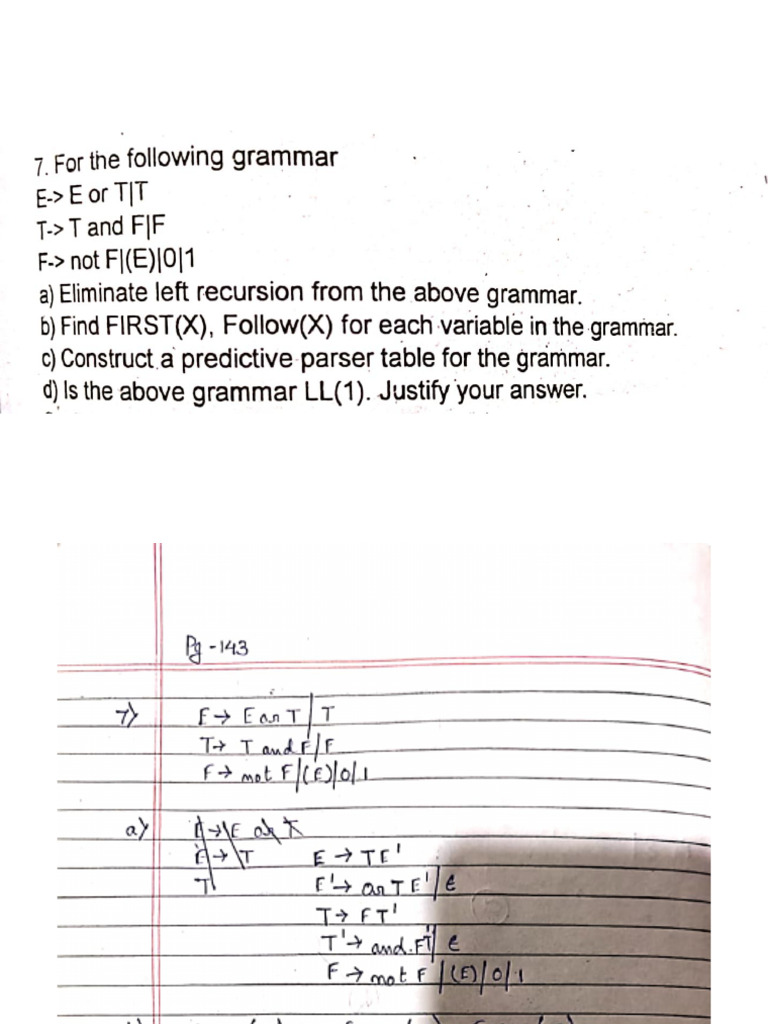 7. For the following grammar
E-> E or T|T
T-> T and F|F
F-> not F|(E)|0|1
a) Eliminate left recursion from the above grammar.
b) Find FIRST(X), Follow(X) for each variable in the grammar.
c) Construct a predictive parser table for the grammar.
d) Is the above grammar LL(1). Justify your answer.
Pg - 143
7) E → E or T | T
T → T and F | F
F → not F | (E) | 0 | 1
a) E → E or T
E → T E → TE'
T E' → or TE' | ε
T → FT'
T' → and FT' | ε
F → not F | (E) | 0 | 1